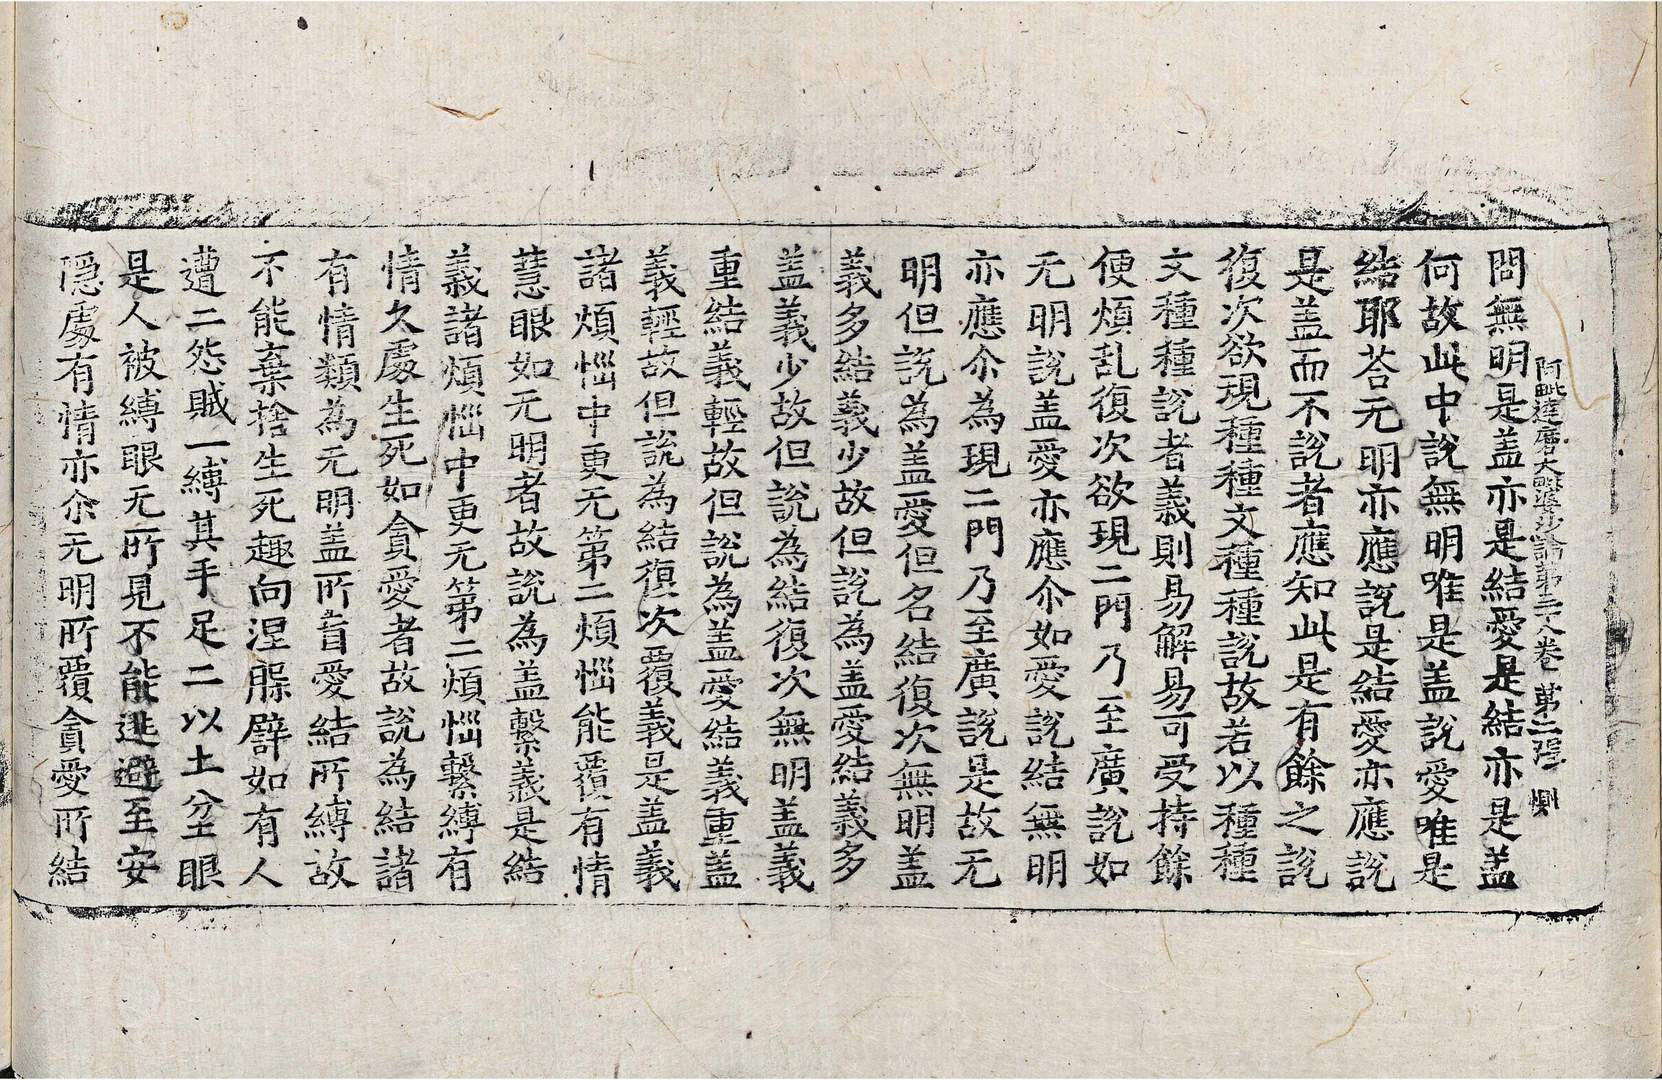 阿毗達磨大毗婆沙論第三十八卷 第二張 惻
問無明是盖亦是結愛是結亦是盖
何故此中說無明唯是盖說愛唯是
結耶荅无明亦應說是結愛亦應說
是盖而不說者應知此是有餘之說
復次欲現種種文種種說故若以種種
文種種說者義則易解易可受持餘
便煩乱復次欲現二門乃至廣說如
无明說盖愛亦應尒如愛說結無明
亦應尒為現二門乃至廣說是故无
明但說為盖愛但名結復次無明盖
義多結義少故但說為盖愛結義多
盖義少故但說為結復次無明盖義
重結義輕故但說為盖愛結義重盖
義輕故但說為結復次覆義是盖義
諸煩惱中更无第二煩惱能覆有情
慧眼如无明者故說為盖繫義是結
義諸煩惱中更无第二煩惱繫縛有
情久處生死如貪愛者故說為結諸
有情類為无明盖所盲愛結所縛故
不能棄捨生死趣向涅槃譬如有人
遭二怨賊一縛其手足二以土坌眼
是人被縛眼无所見不能逃避至安
隱處有情亦尒无明所覆貪愛所結